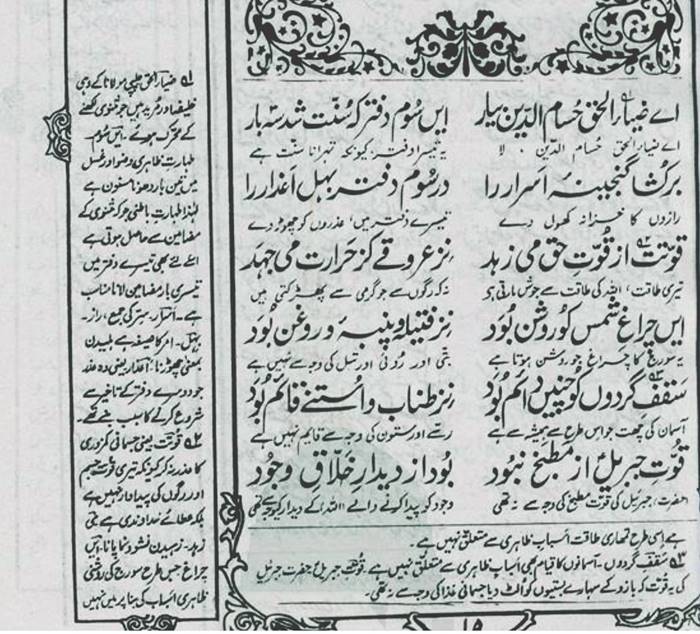 اے ضیاء الحق حسام الدین بیار ایں سوم دفتر کہ سنت شد سہ بار
اے ضیاء الحق حسام الدین ، لا یہ تیسرا دفتر، کیونکہ تین بار سنت ہے
برکشا گنجینۂ اسرار را در سوم دفتر بہل اعذار را
رازوں کا خزانہ کھول دے تیسرے دفتر میں عذروں کو چھوڑ دے
قوتت از قوت حق می زہد نز عروقے کز حرارت می جہد
تیری طاقت، اللہ کی طاقت سے جوش مارتی ہے نہ کہ رگوں سے جو گرمی سے پھڑکتی ہیں
ایں چراغ شمس کو روشن بود نز فتیلہ و پنبہ و روغن بود
یہ سورج کا چراغ جو روشن ہوتا ہے بتی اور روئی اور تیل کی وجہ سے نہیں ہے
سقف گردوں کو چنیں دائم بود نز طناب و استنے قائم بود
آسمان کی چھت جو اس طرح سے ہمیشہ سے ہے رسے اور ستون کی وجہ سے قائم نہیں ہے
قوت جبریلؑ از مطبخ نبود بود از دیدار خلاق وجود
حضرت جبریل کی قوت مطبخ کی وجہ سے نہ تھی وجود کو پیدا کرنے والے اللہ کے دیدار کیوجہ سے تھی
ہے اسی طرح تمہاری طاقت اسباب ظاہری سے متعلق نہیں ہے۔
۳؎ سقف گردوں۔ آسمانوں کا قیام بھی اسباب ظاہری سے متعلق نہیں ہے۔ قوت جبریلؑ حضرت جبریل
کی یہ قوت کہ بازو کے سہارے بستیوں کو الٹ دیا جسمانی غذا کی وجہ سے نہ تھی۔
۱؎ ضیاء الحق چلپی مولانا کے وہی
خلیفہ اور مرید ہیں جو مثنوی لکھنے
کے محرک ہوئے۔ ایں سوم۔
طہارت ظاہری وضو اور غسل
میں تین بار دھونا مسنون ہے
لہٰذا طہارت باطنی جو کہ مثنوی کے
مضامین سے حاصل ہوتی ہے
اسکے لئے بھی تیسرے دفتر میں
تیسری بار مضامین لانا مناسب
ہے۔ اسرار۔ سر کی جمع، راز۔
بہل۔ امر کا صیغہ ہے ہلیدن
بمعنی چھوڑنا۔ اعذار یعنی وہ عذر
جو دوسرے دفتر کے تاخیر سے
شروع کرنے کا سبب بنے تھے۔
۲؎ قوتت یعنی جسمانی کمزوری
کا عذر نہ کر کیونکہ تیری قوت جسم
اور رگوں کی پیداوار نہیں ہے
بلکہ عطائے خداوندی ہے
زہد۔ زہیدن نشوونما پانا۔ ایں
چراغ جس طرح سورج کی روشنی
ظاہری اسباب کی بنا پر نہیں